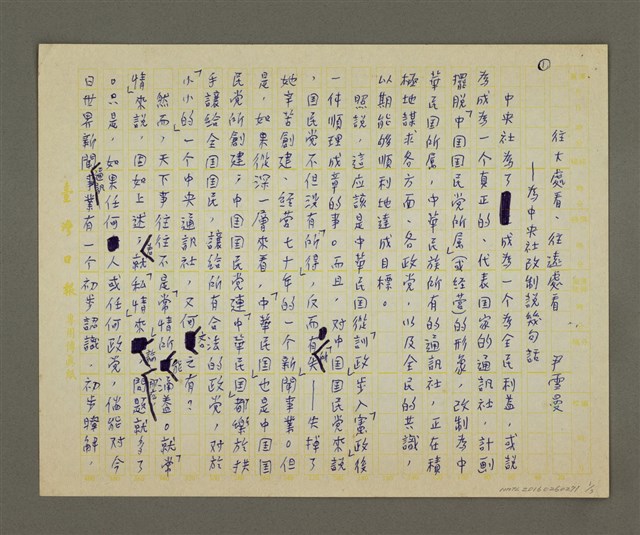 ①
往大處看、往遠處看 尹雪曼
——為中央社改制說幾句話
中央社為了成為一個為全民利益,或說
為成為一个真正的、代表国家的通訊社,計劃
擺脫「中国国民党所属」或經营的形象,改制為中
華民国所属,中華民族所有的通訊社,正在積
極地謀求各方面、各政党,以及全民的共識,
以期能够順利地達成目標。
照說,這应該是中華民国從「訓政」步入「憲政」後
一件順理成章的事。而且,对中国国民党來說
,国民党不但没有「所得」,反而有「所失」——失掉了
她辛苦創建、經营七十年的一个新聞事業。但
是,如果從深一層來看,「中華民国」也是中国国
民党所創建;中国国民党連「中華民国」都樂於拱
手讓給全国国民,讓給所有合法的政党,对於
「小小的」一个中央通訊社,又何吝之有?
然而,天下事往往不是「常情」所能涵蓋。就「常
情」來說,固如上述;但就「私情」來論,問題就多了
。只是,如果任何人或任何政党,倘能对今
日世界新聞通訊事業有一个初步認識、初步瞭解,
臺灣日報
NMTL20160260291 1/5